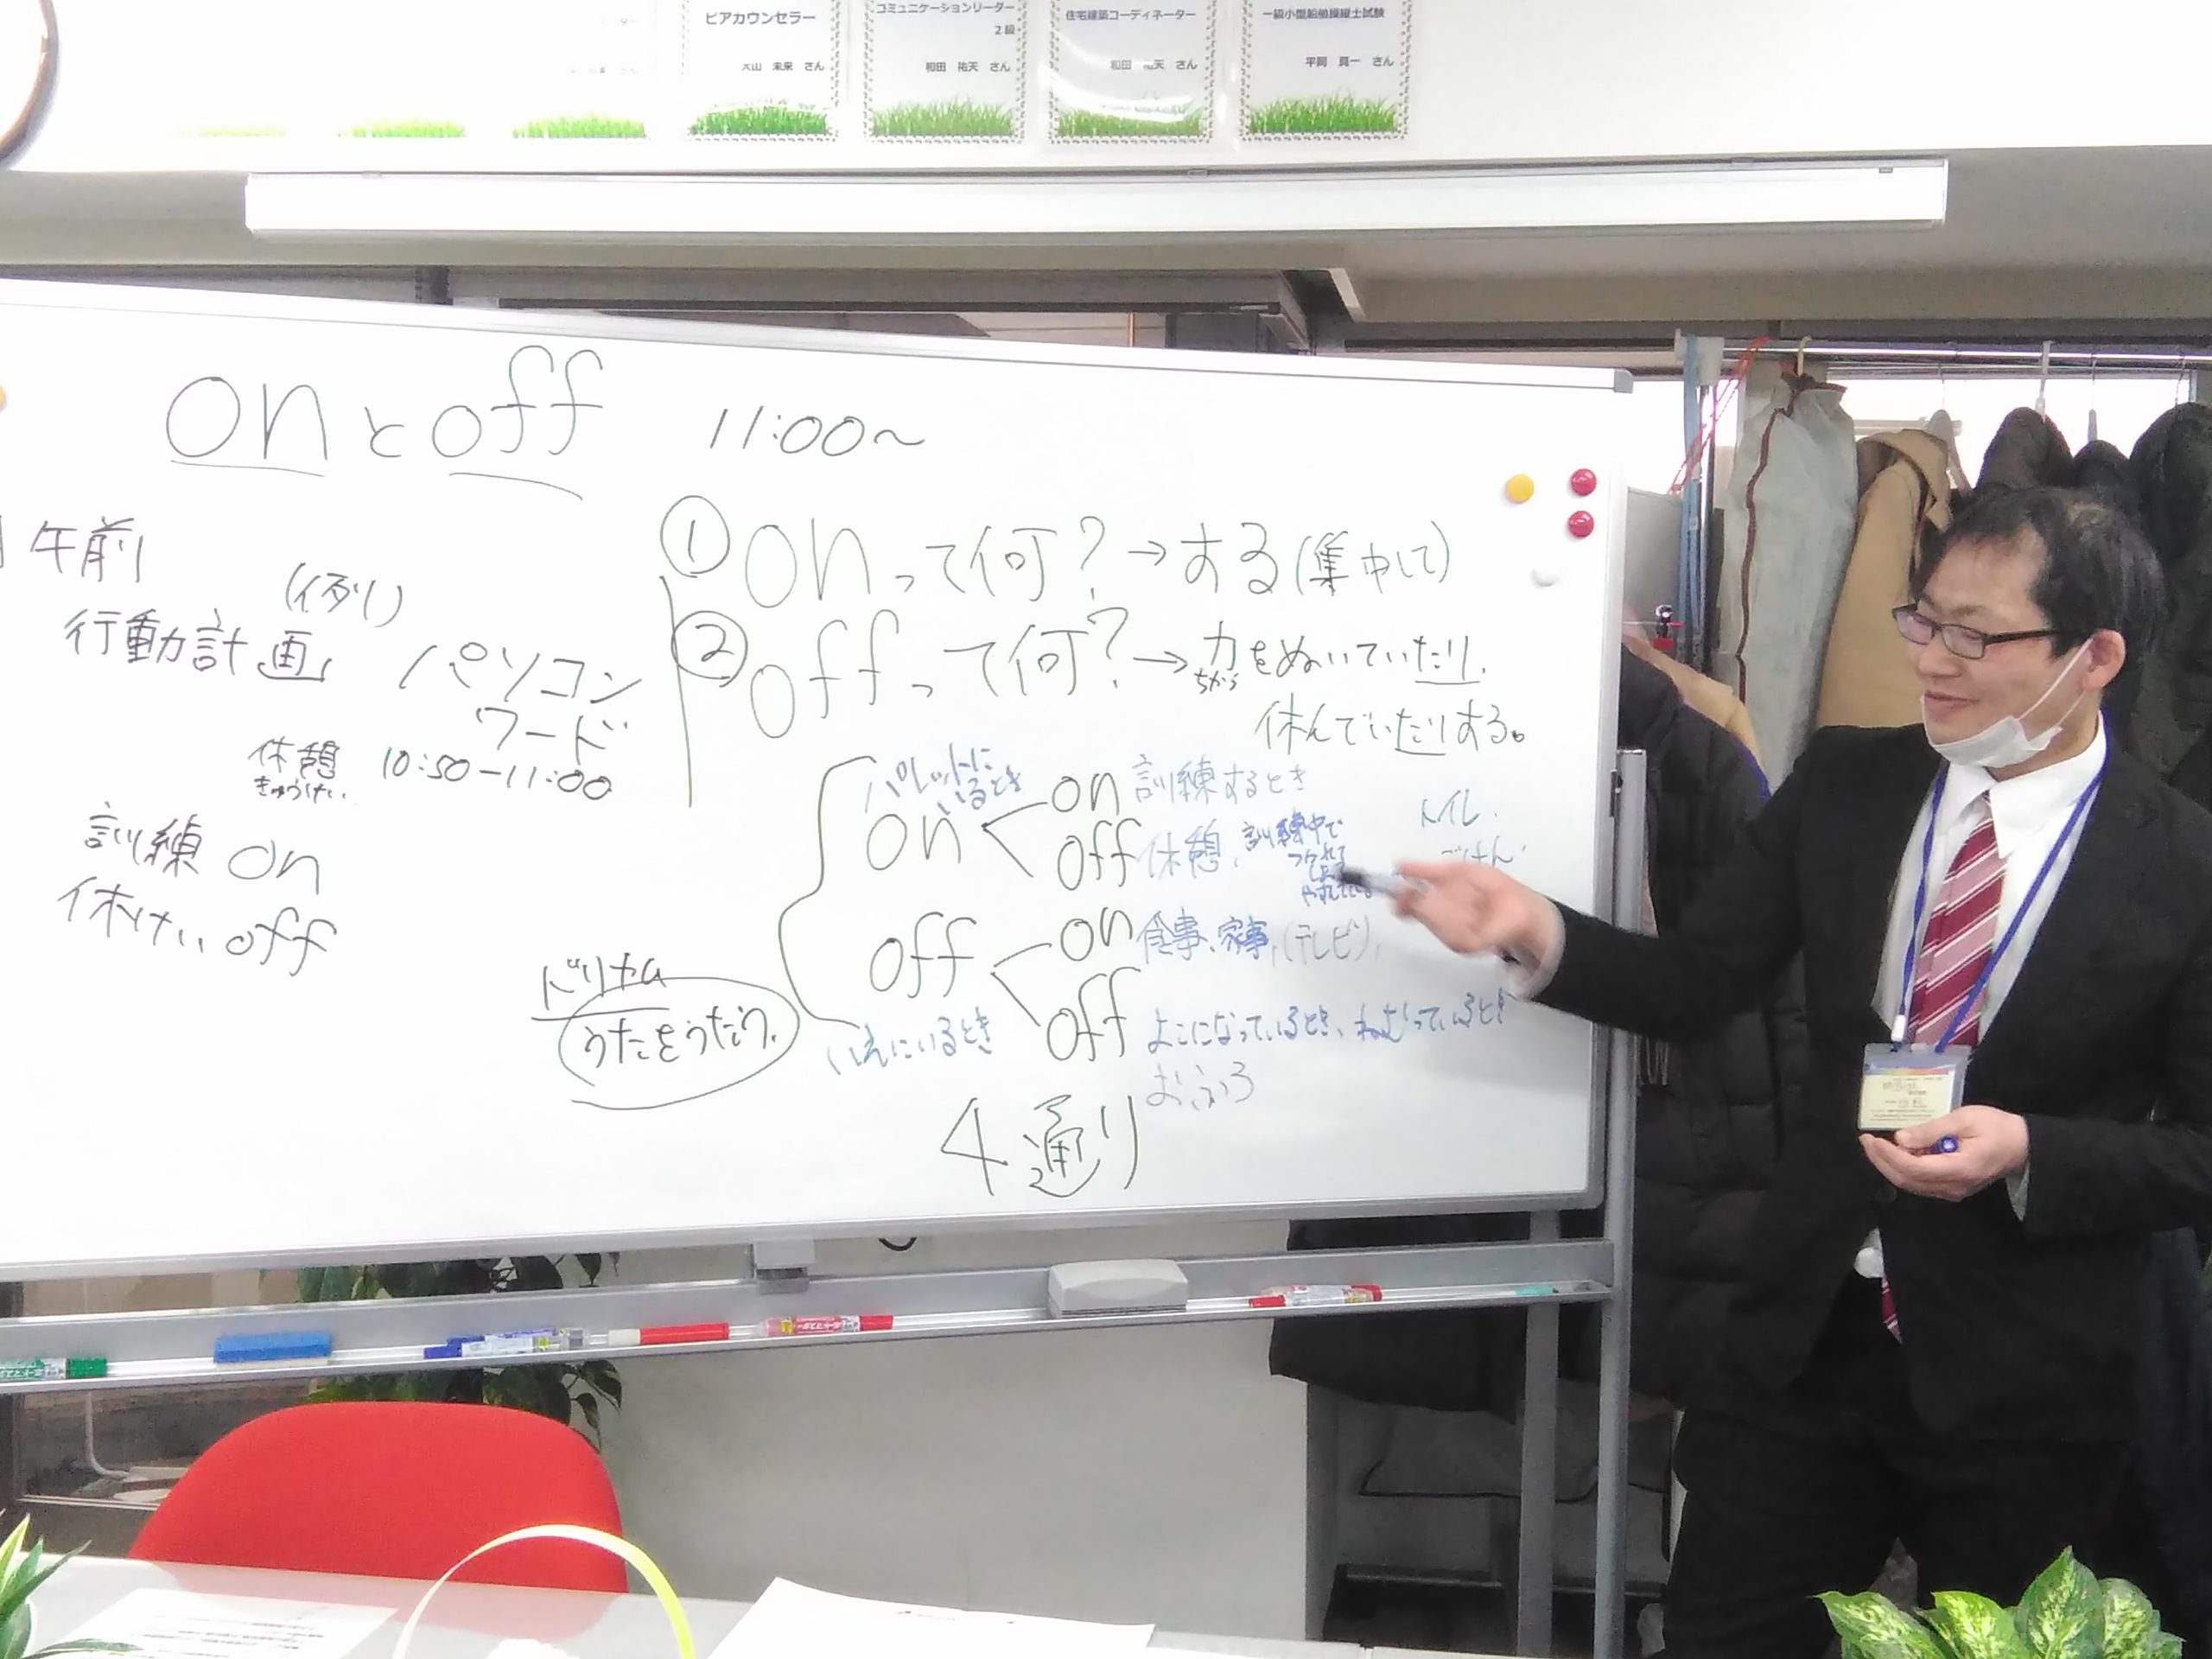 ピアカウンセラー
大山 未来 さん
コミュニケーションリーダー
2級
和田 祐天 さん
住宅建築コーディネーター
和田 祐天 さん
一級小型船舶操縦士試験
平岡 真一 さん
onとoff 11:00〜
午前
(例)
行動計画 パソコン
ワード
休憩 10:50-11:00
きゅうけい
訓練 on
休けい off
① onって何?→する(集中して)
② offって何?→力をぬいていたり、
ちから
休んでいたりする。
パレットに
いるとき
on
on 訓練するとき
off 休憩、訓練中で
つかれて
トイレ、
ごはん
off
on 食事、家事、(テレビ)、
off よこになっているとき、ねむっているとき
おふろ
いえにいるとき
ドリカム
うたをうたう、
4通り